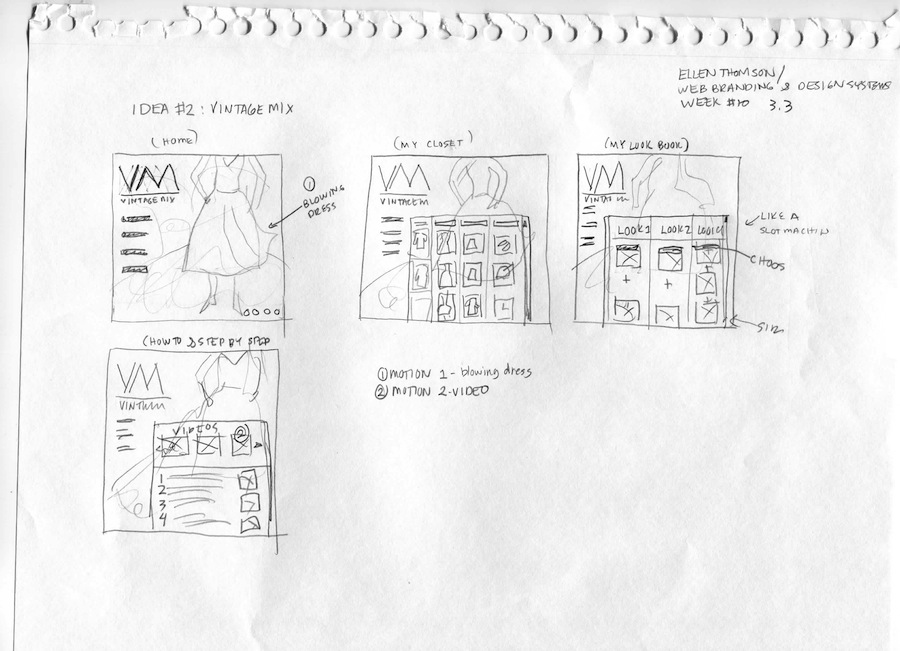 ELLEN THOMSON/
WEB BRANDING & DESIGN SYSTEMS
WEEK #10 3.3
IDEA #2: VINTAGE MIX
(HOME)
VM
VINTAGE MIX
① BLOWING
DRESS
(MY CLOSET)
VM
(MY LOOK BOOK)
VM
LOOK 1 LOOK 2 LOOK
+ +
LIKE A
SLOT MACHIN
CHOOS
(HOW TO & STEP BY STEP
VM
VIDEOS
②
1
2
3
4
① MOTION 1 - blowing dress
② MOTION 2 - VIDEO